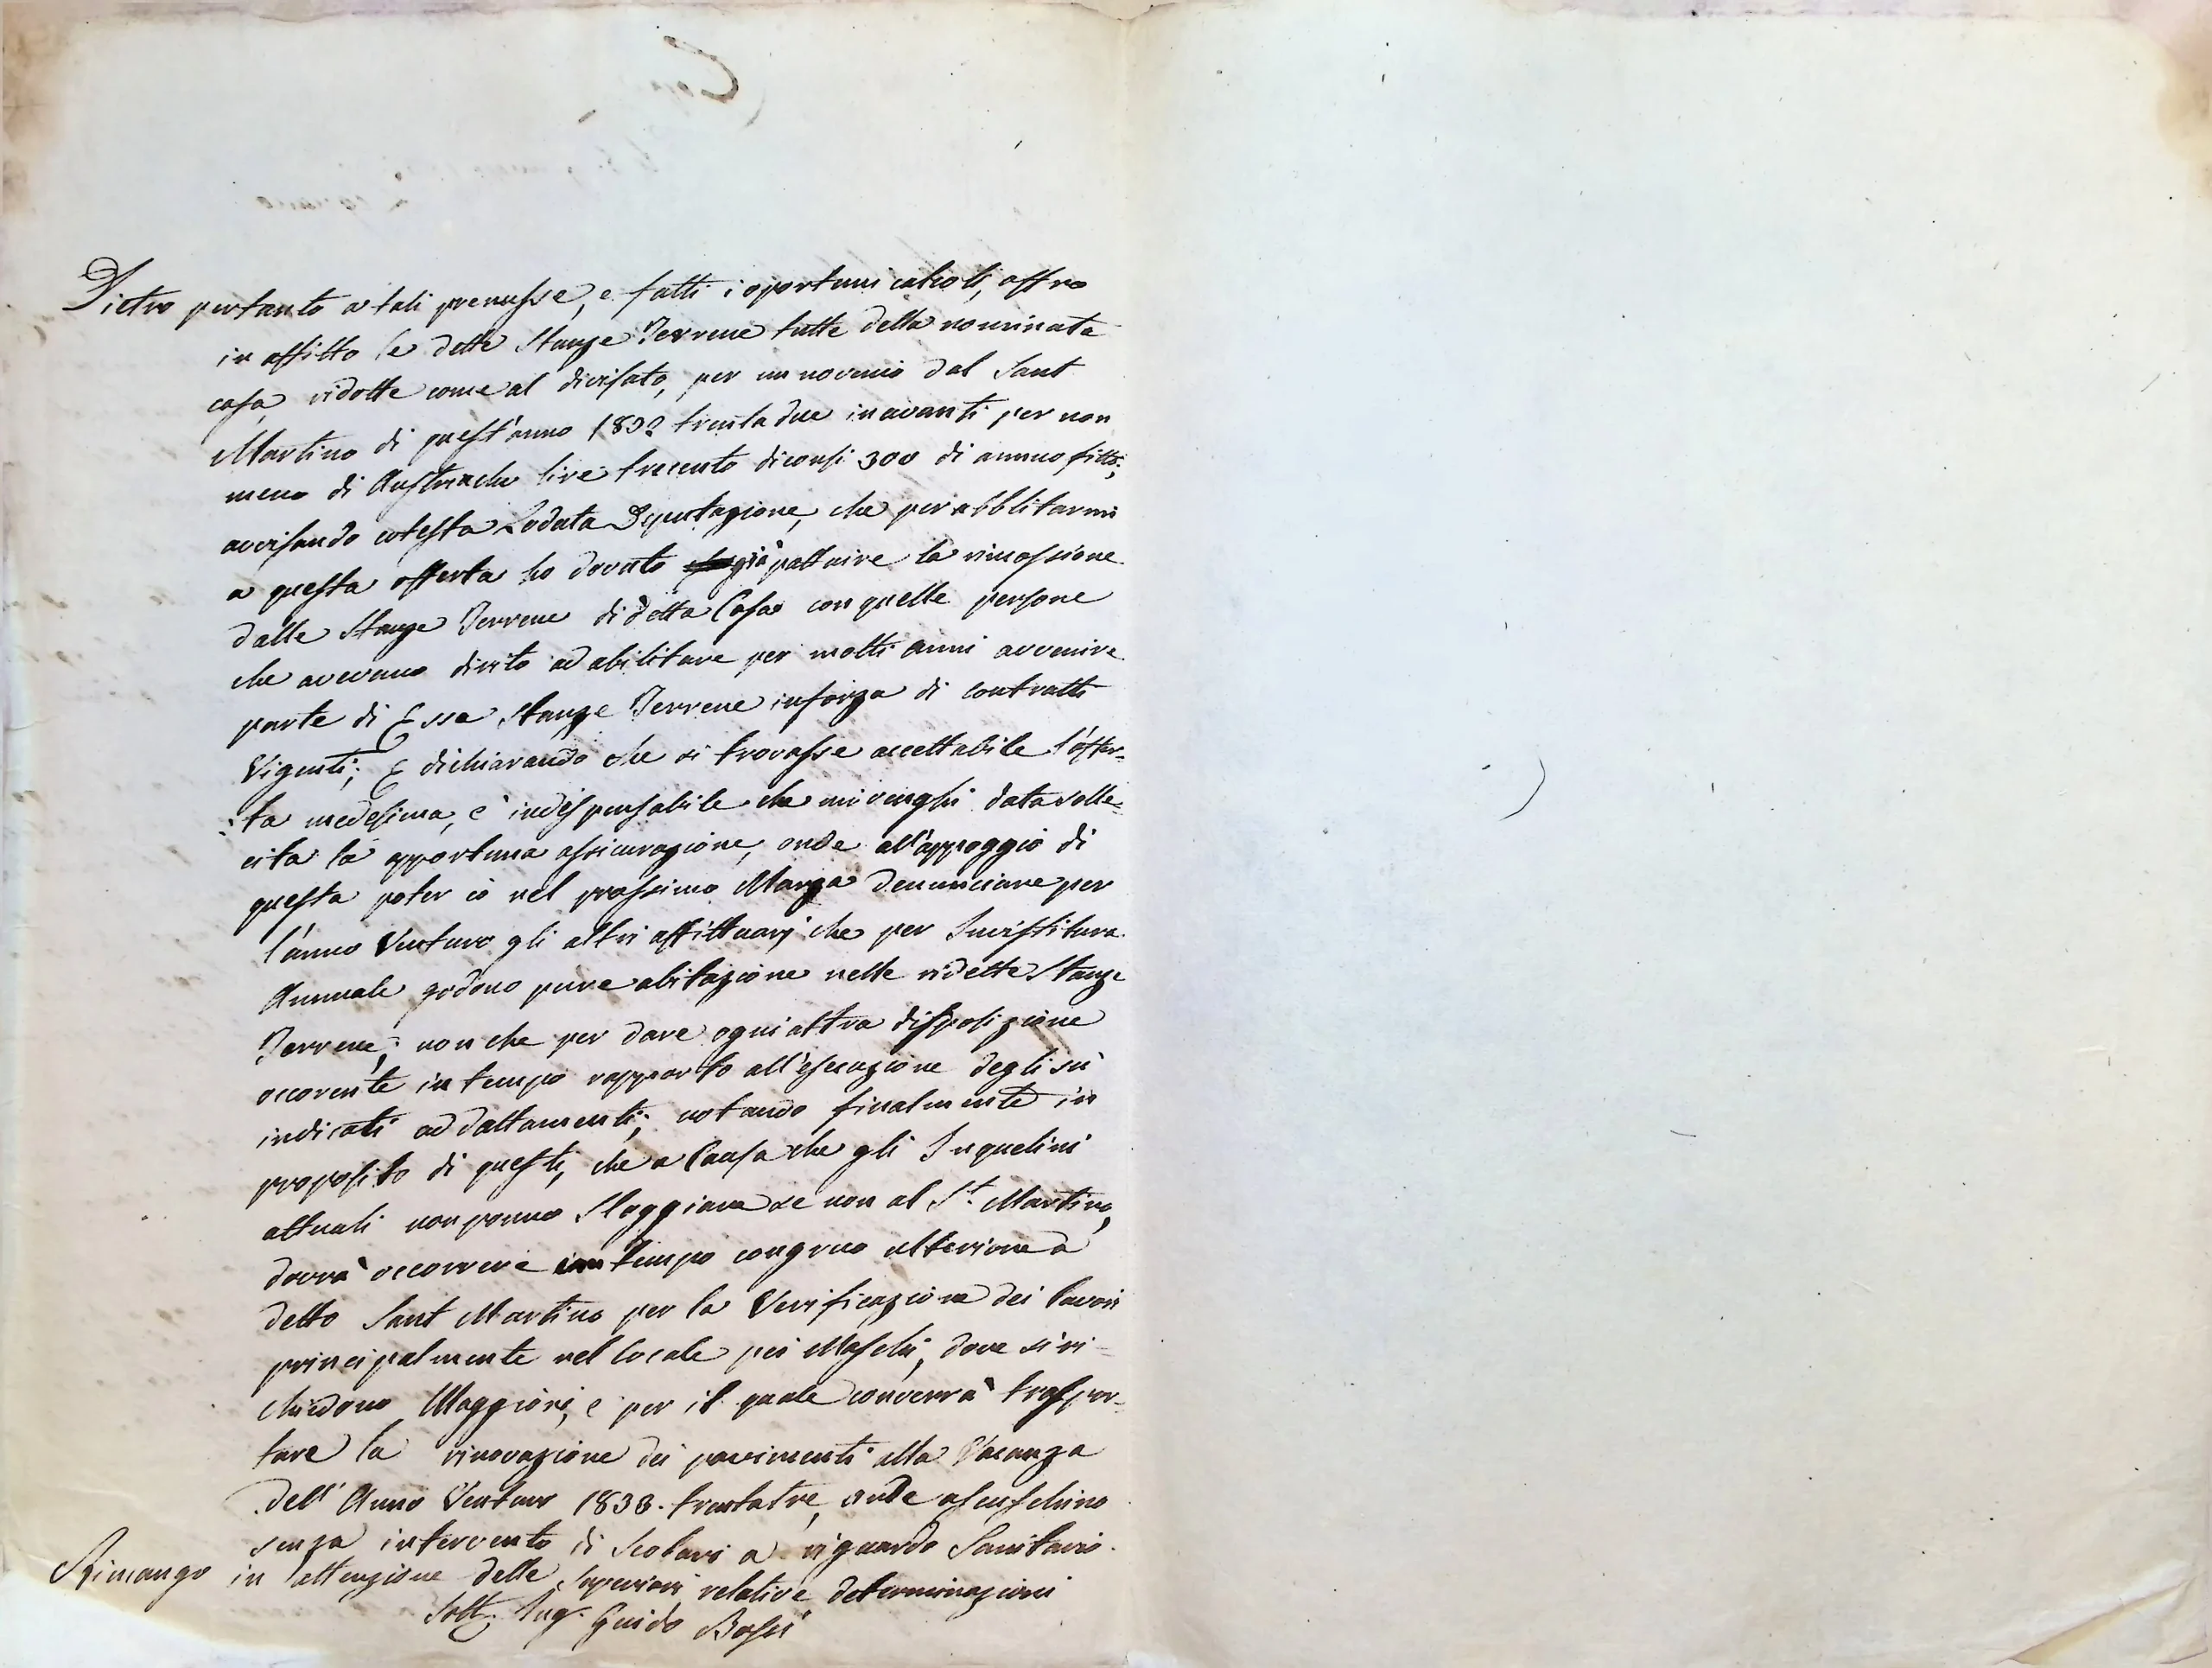 Dietro pertanto a tali premesse, e fatti i oportuni calcoli, offro
in affitto le dette Stanze Terrene tutte della nominata
casa, ridotte come al divisato, per un novenio dal Sant
Martino di quest'anno 1832 trentadue inavanti per non
meno di Austriache lire trecento diconsi 300 di annuo fitto;
avvisando cotesta Lodata Deputazione, che per abblitarmi
a questa offerta ho dovuto già pattuire la rimossione
dalle Stanze Terrene di detta Casa con quelle persone
che avevano dirito ad abilitare per molti anni avvenire
parte di Essa Stanze Terrene inforza di contratti
Vigenti; E dichiarando che si trovasse accettabile l'offer=
=ta medesima, è indispensabile che mi venghi data solle=
cita la opportuna assicurazione, onde all'appoggio di
questa poter io nel prossimo Marzo denunciare per
l'anno Venturo gli altri affittuarj che per Invistitura
Annuale godono pure abitazione nelle ridette Stanze
Terrene; non che per dare ogni altra disposizione
occorente in tempo rapporto all'esecuzione degli su
indicati addattamenti; notando finalmente in
proposito di questi, che a Causa che gli Inquelini
attuali non ponno Sloggiare se non al St. Martino,
dovrà occorrere un tempo congruo ulteriore a
detto Sant Martino per la Verificazione dei lavori
principalmente nel locale pei Maschi, dove si ri-
chiedono Maggiori, e per il quale converrà traspor=
tare la rinovazione dei pavimenti alla Vacanza
dell'Anno Venturo 1833. trentatre, onde asciuschino
senza intervento di Scolari a riguardo Sanitario.
Rimango in attenzione delle Superiori relative determinazioni
Sott. Ing. Guido Bossi